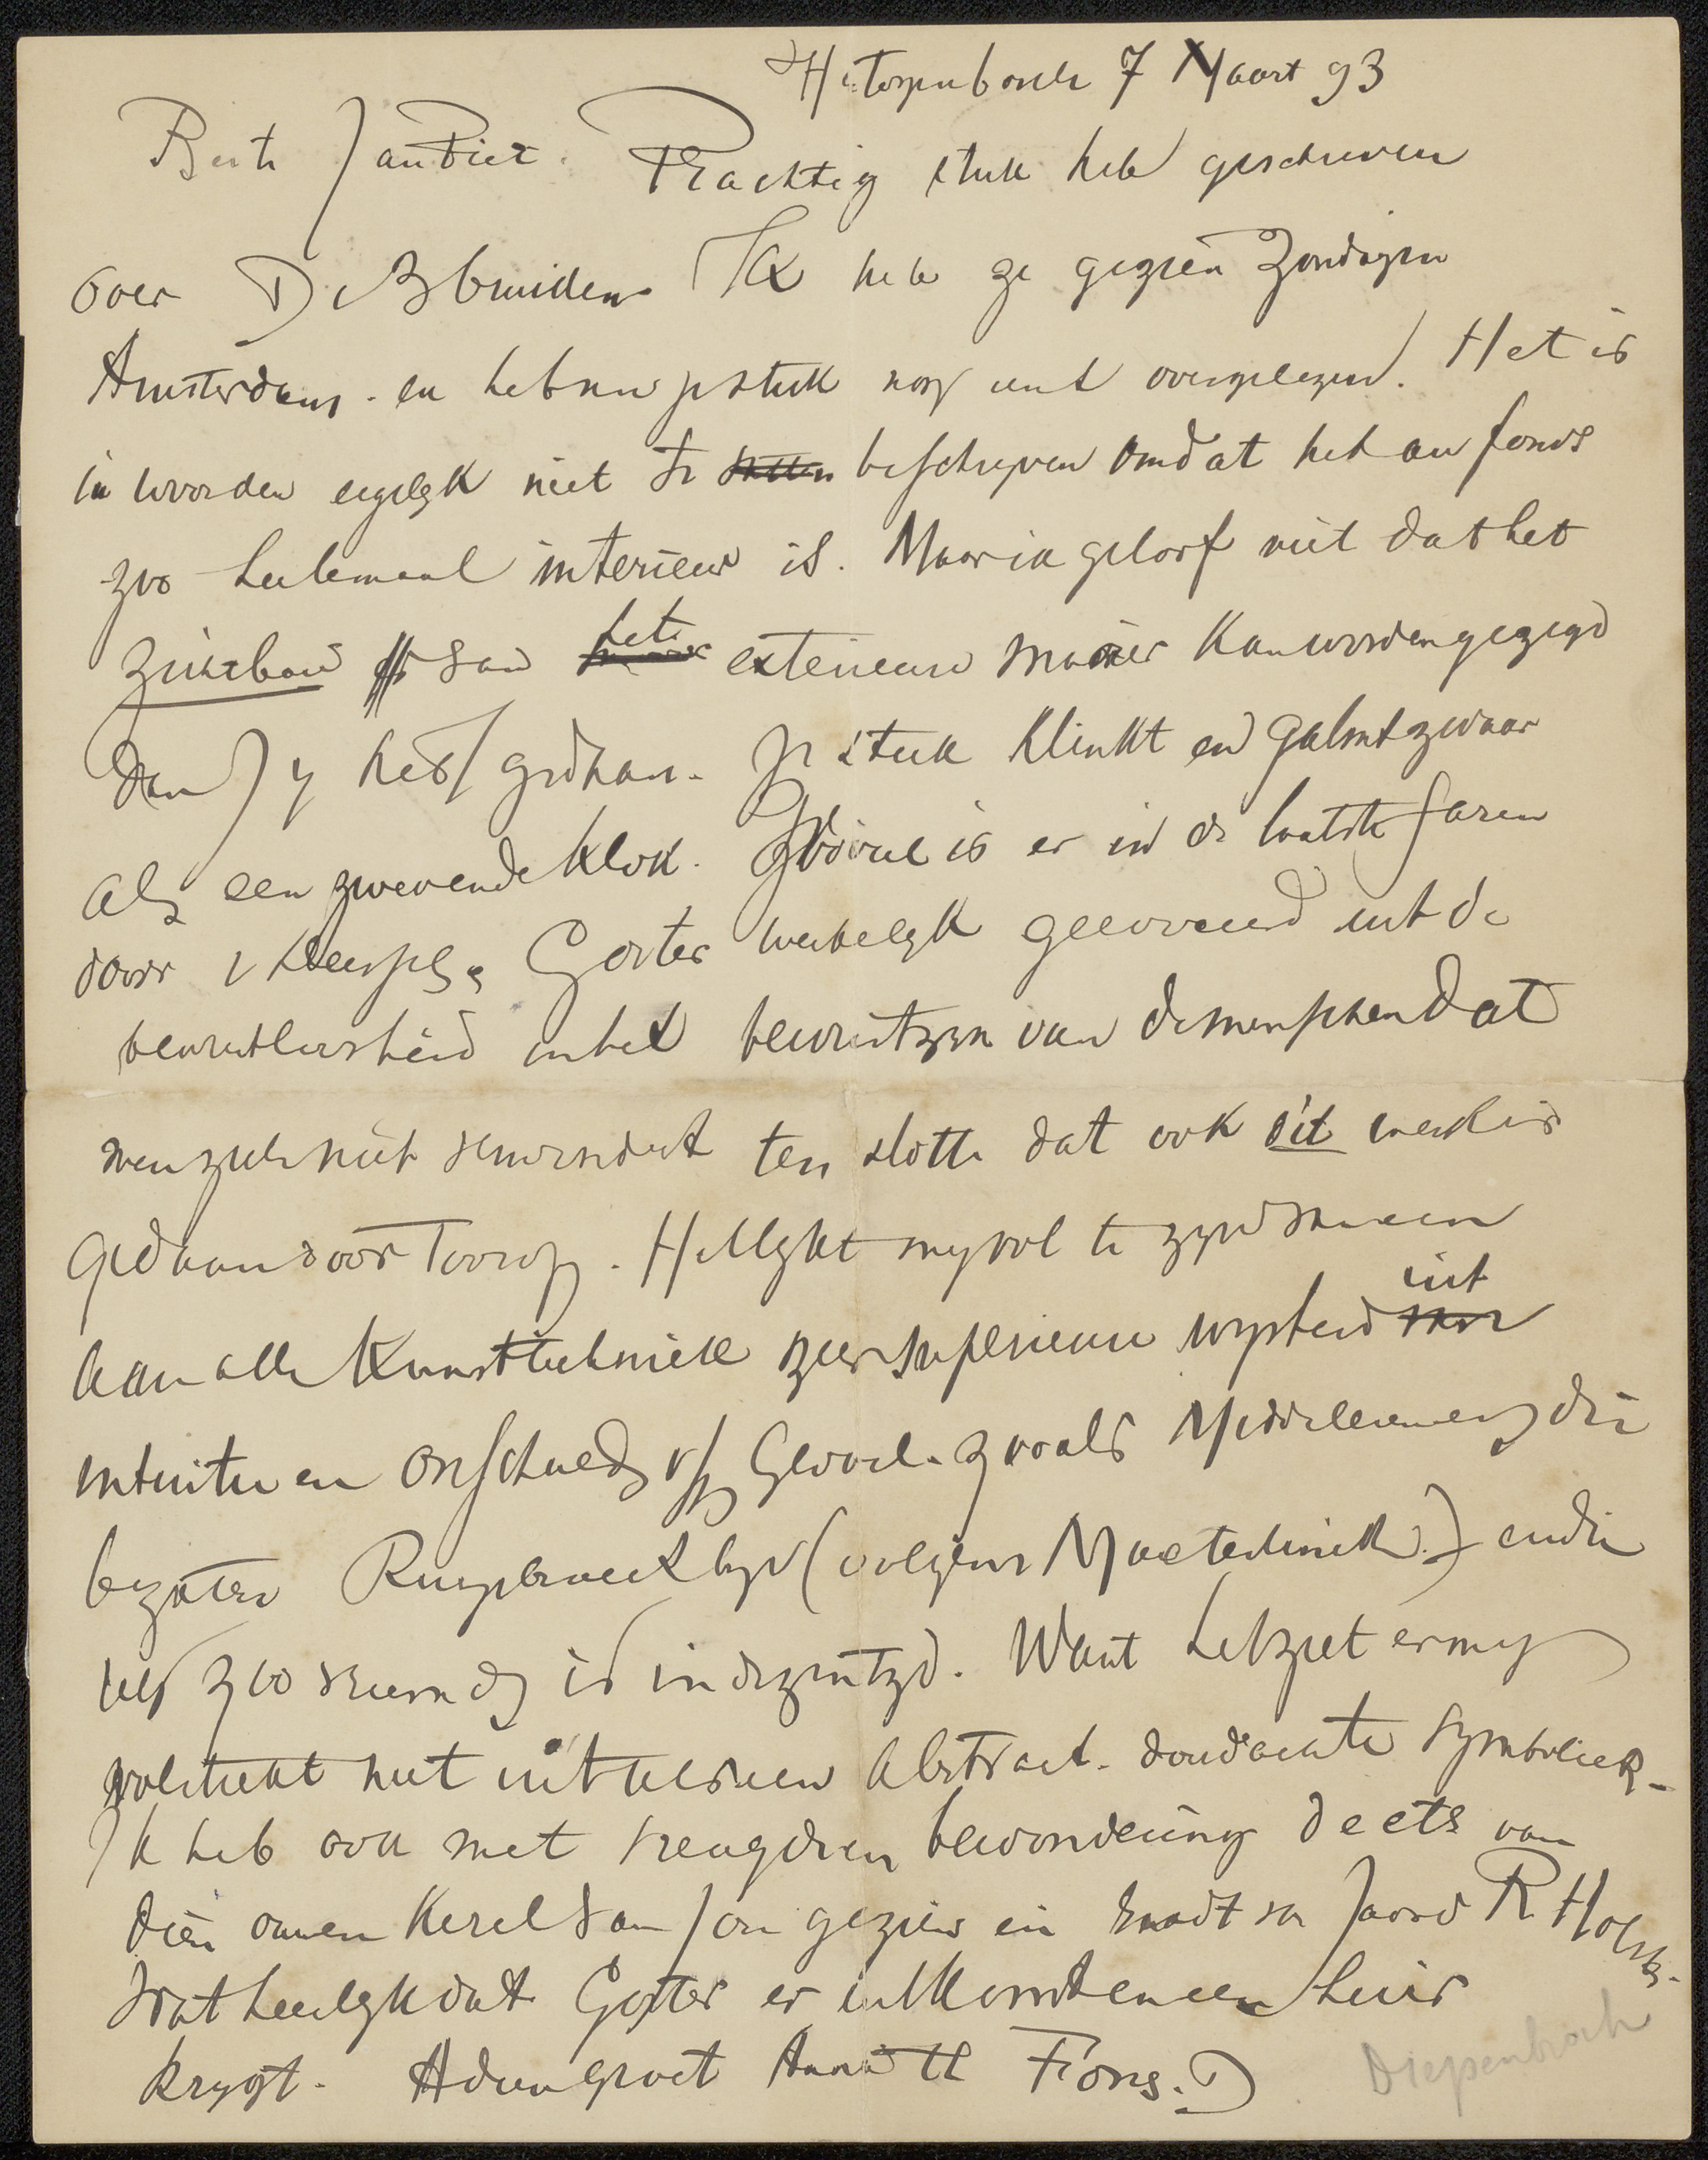 sHertogenbosch 7 Maart 93
Beste Jan Piet. Prachtig stuk heb geschreven
over De Bruiden. Ik heb ze gezien Zondag in
Amsterdam. en heb nu je stuk nog eens overgelezen. Het is
in woorden eigelyk niet te beschryven omdat het au fond
zoo heelemaal interieur is. Maar ik geloof niet dat het
zichtbare van het exterieure mooier kan worden gezegd
dan Jy hebt gedaan. Je stuk klinkt en galmt zwaar
als een zwevende klok. Zóóveel is er in de laatste jaren
door Gorter werkelyk geworden uit de
bewusteloosheid in het bewustzyn van de menschen dat
men zich niet verwondert ten slotte dat ook dit werk is
gedaan door Toorop. Het lykt my vol te zyn van een
aan alle kunsttechniek zeer superieure wysheid uit
intuitie en onschuldig gevoel. zooals Middeleeuwers die
bezaten Ruysbroeck bijv (volgens Maeterlinck) en die
heel zoo vreemd is in deze tyd. Want het ziet er my
volstrekt niet uit als een abstract. doordachte symboliek.
Ik heb ook met vreugde en bewondering de ets van
dien ouwen kerel van jou gezien in R Holst.
Wat heerlyk dat Gorter er uitkomt en een huis
krygt. Adieu groet Anna tt Fons. D
Diepenbrock